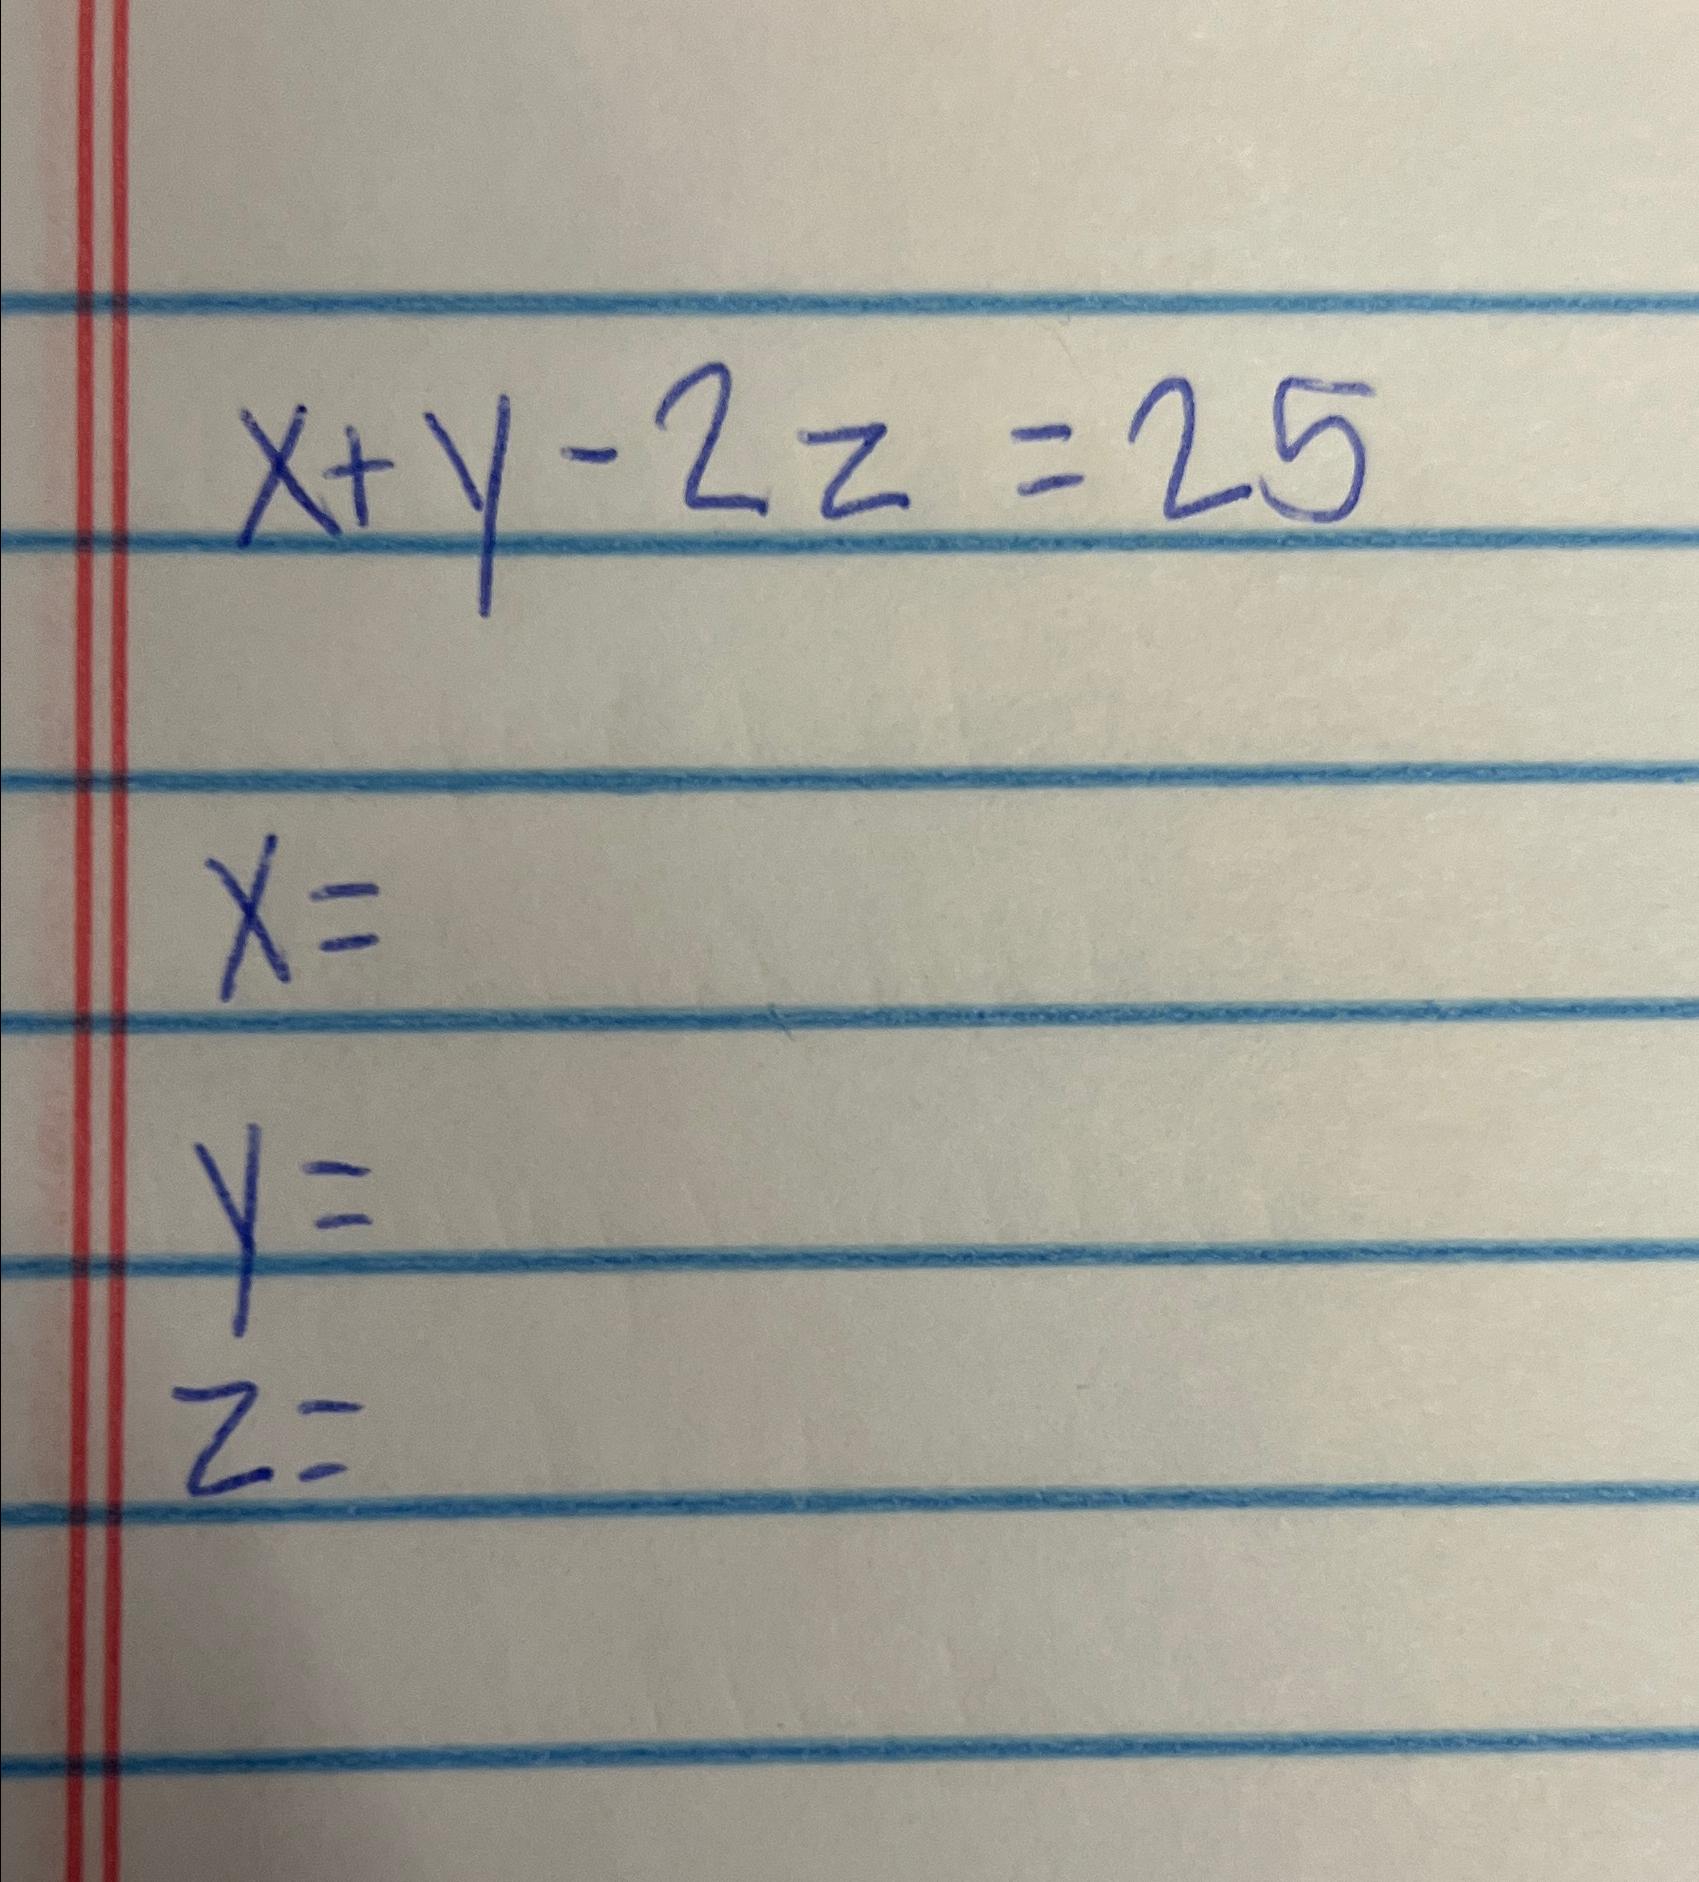 x+y-2z=25
x=
y=
z=